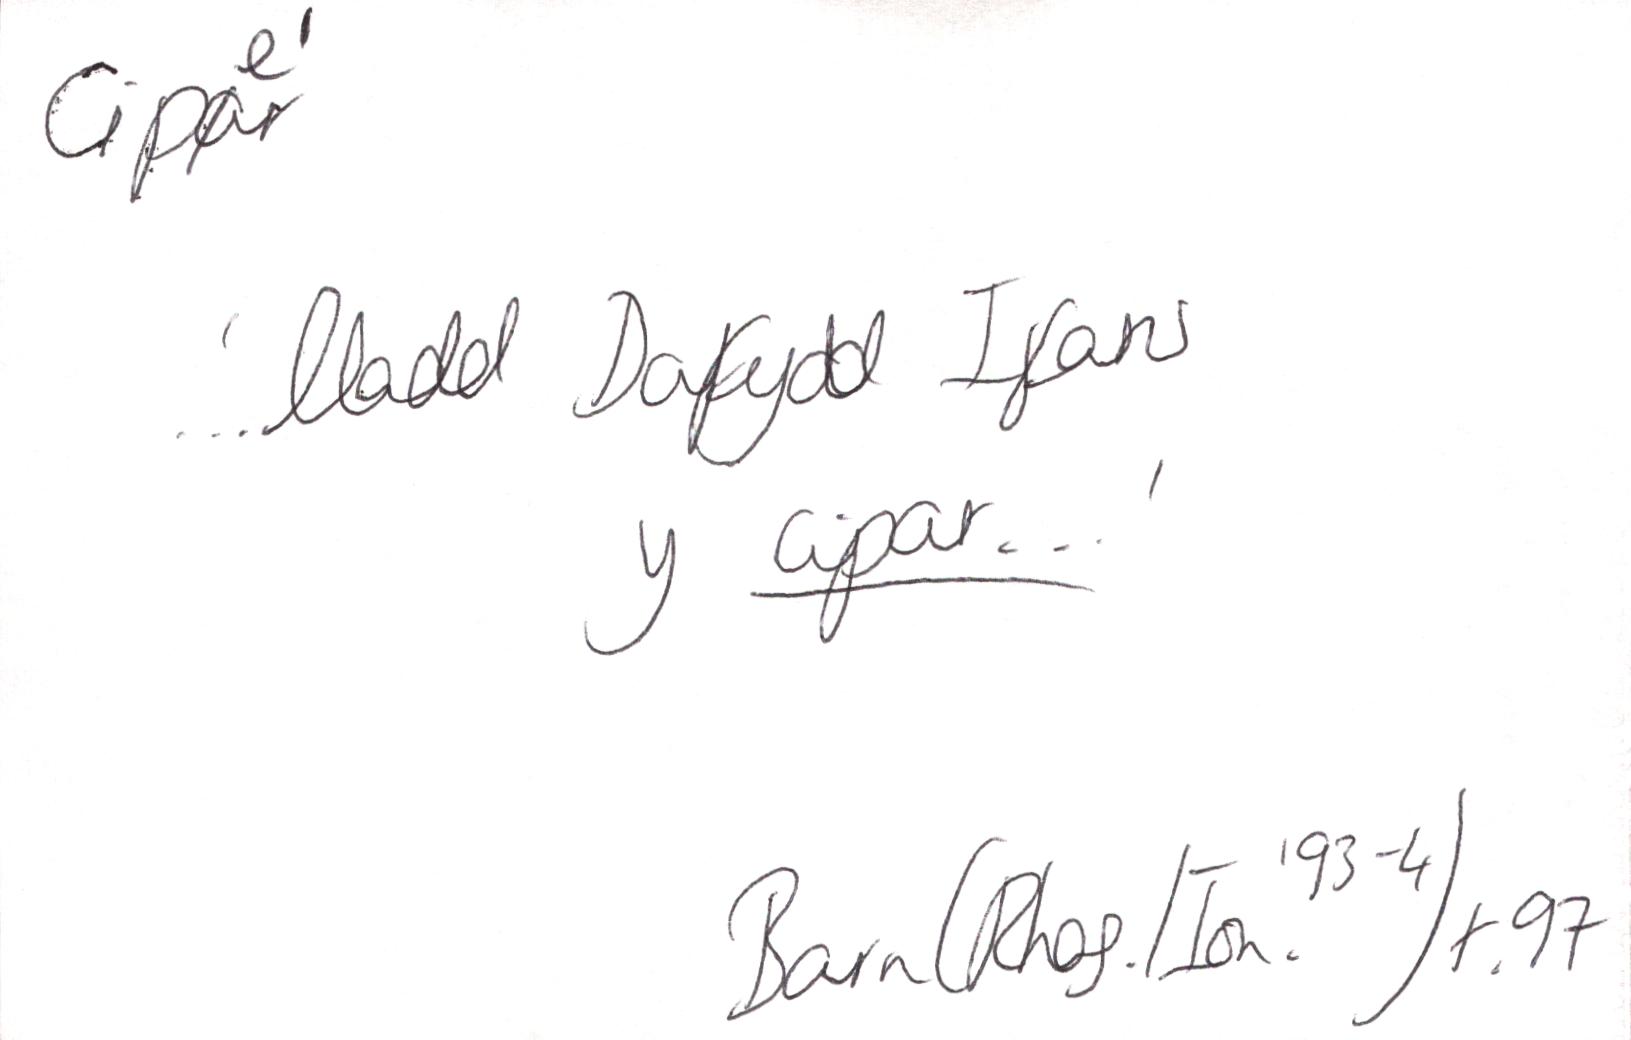 Cipar e¹
'...lladd Dafydd Ifans
y cipar...'
Barn (Rhag./Ion. '93-4) t.97